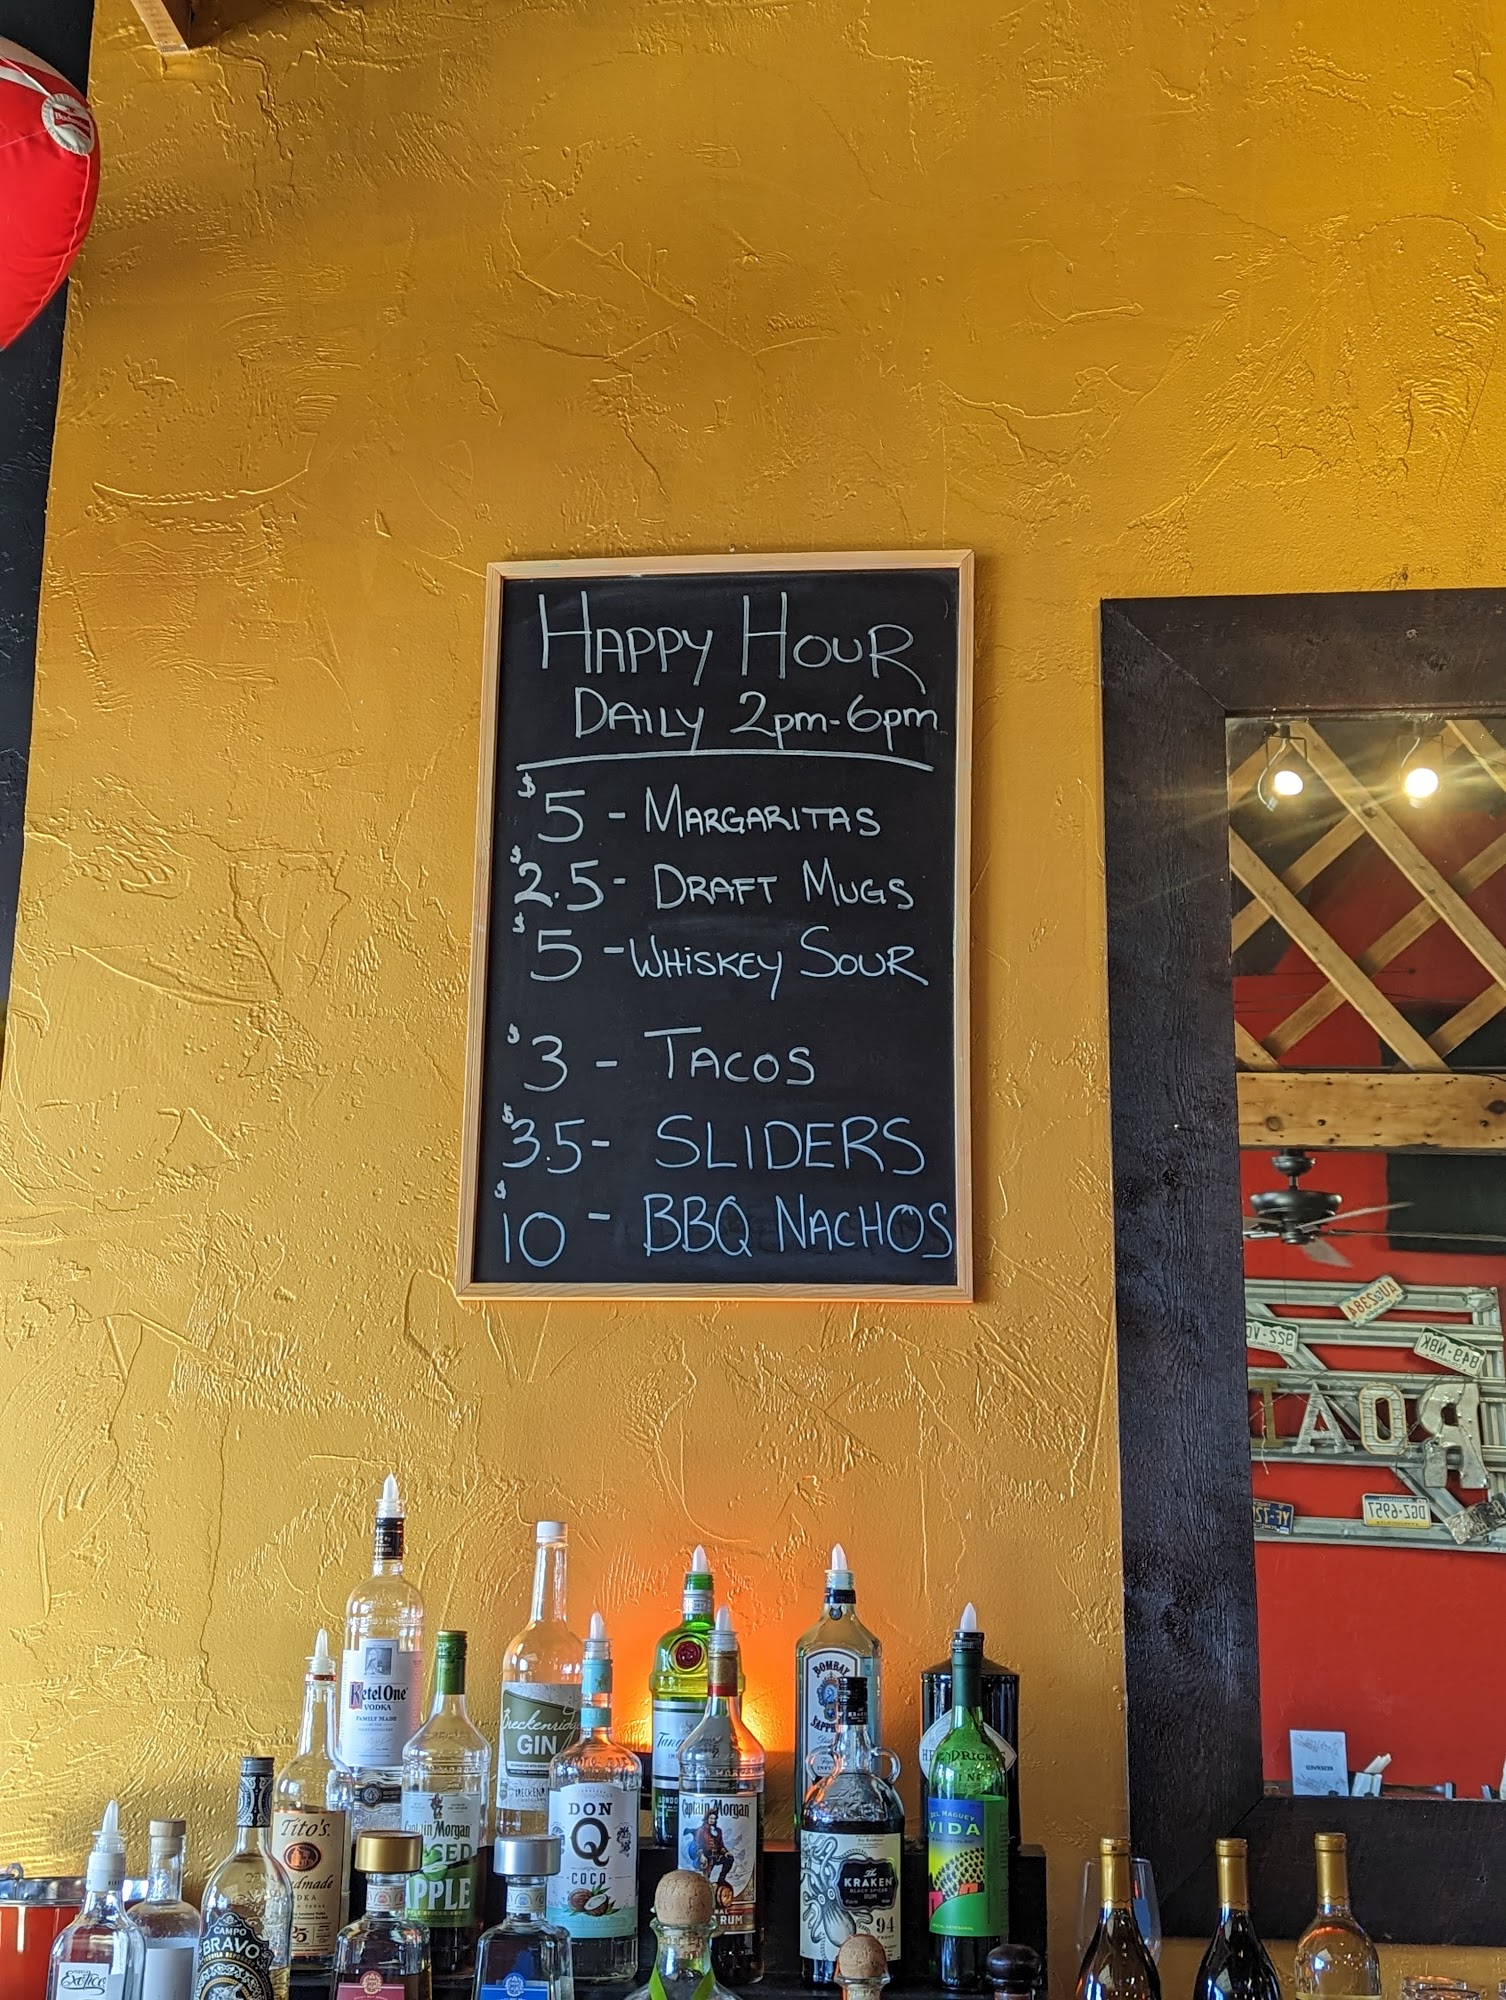 Budweiser
HAPPY HOUR
DAILY 2pm-6pm
$5 - MARGARITAS
$2.5 - DRAFT MUGS
$5 - WHiSKEY SOUR
$3 - TACOS
$3.5 - SLIDERS
$10 - BBQ NACHOS
AU2384
922-V
849-NBK
ROA
DGZ-6957
Ketel One
VODKA
FAMILY MADE
Breckenridge
GIN
Tang
LONDON
BOMBAY
SAPP
HENDRICK'S
GIN
Tito's
Handmade
VODKA
Captain Morgan
APPLE
DON
Q
COCO
Captain Morgan
RUM
The
KRAKEN
BLACK SPICED
RUM
94
DEL MAGUEY
VIDA
CAMPO
BRAVO
Exotico